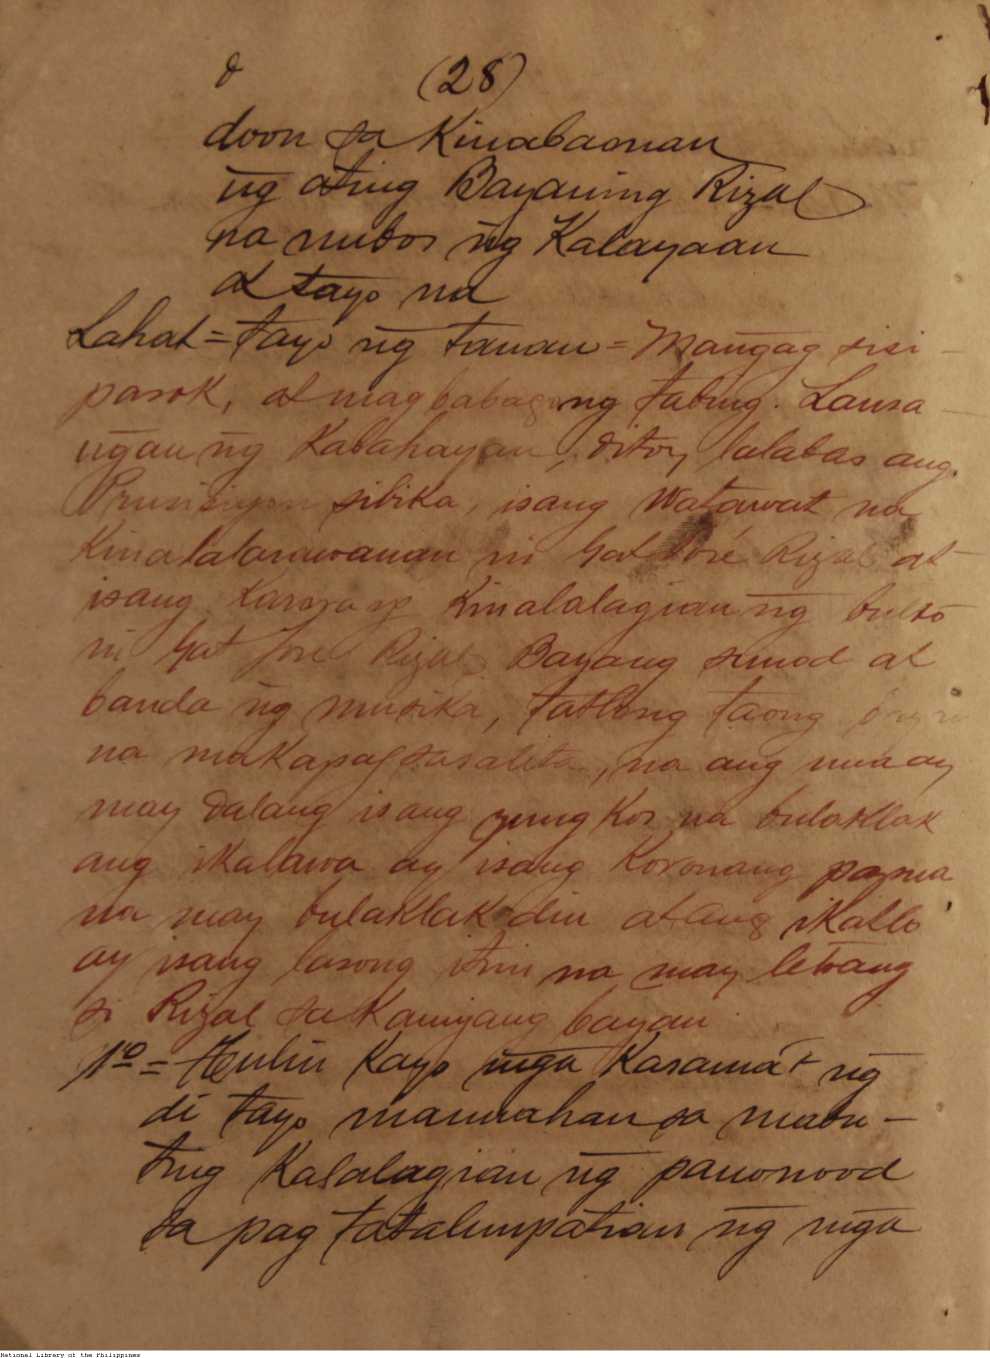 (28)
doon sa Kinabaonan
ng ating Bayaning Rizal
na nubos ng Kalayaan
at tayo na
Lahat = tayo ng tanan = Mangag sisi -
pasok, at magbabagong tabing. Lansa -
ngan ng Kabahayan, ditoy lalabas ang
Prusisiyon sibika, isang Watawat na
Kinalalarawanan ni Gat José Rizal at
isang Karosang Kinalalagian ng bulto
ni Gat José Rizal Bayang sunod at
banda ng musika, tatlong taong
na makapagsasalita, na ang una ay
may dalang isang pungkos na bulaklak
ang ikalawa ay isang Koronang palma
na may bulaklak din at ang ikatlo
ay isang lasong itim na may letrang
si Rizal sa Kaniyang bayan
1º = Hulin Kayo mga Kasama't ng
di tayo maunahan sa mabu -
ting Kalalagian ng panonood
sa pag tatalumpatian ng mga
National Library of the Philippines